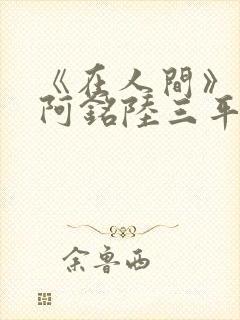 《在人間》
阿銘陸三年
余魯西